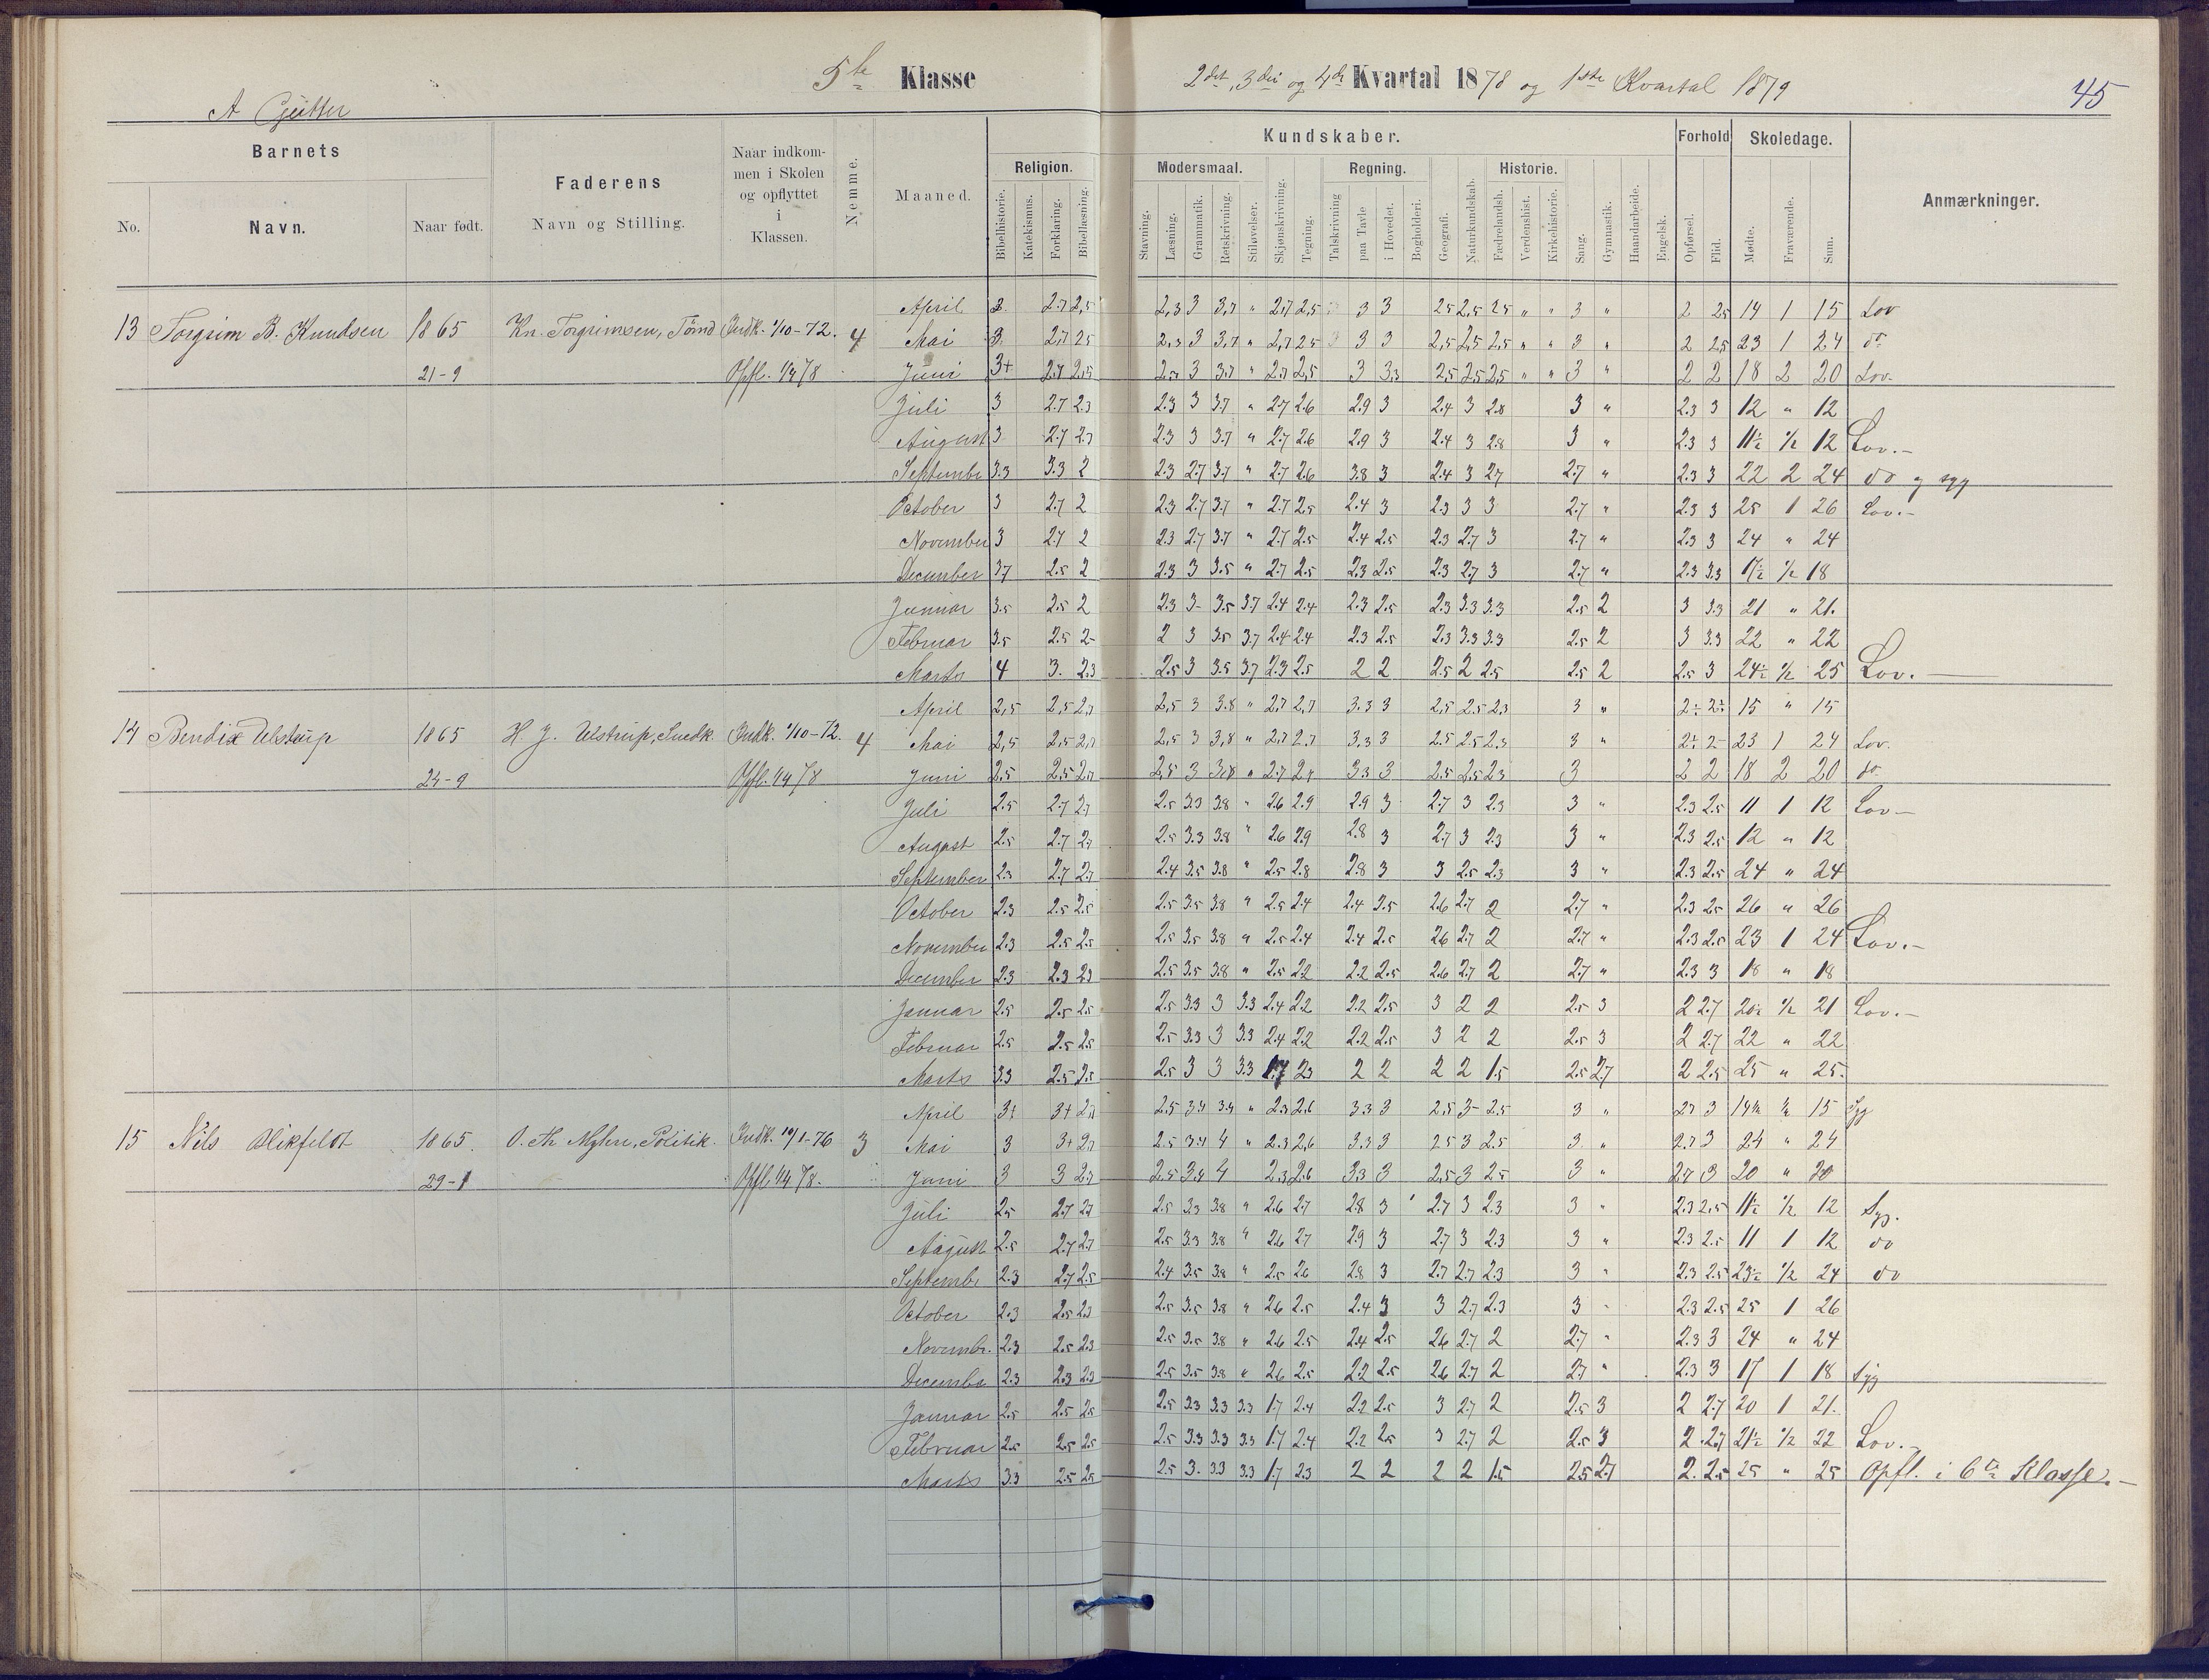 5te Klasse
2det, 3die og 4de Kvartal 1878 og 1ste Kvartal 1879
45
A Gutter
Barnets
Faderens
Naar indkommen i Skolen og opflyttet i Klassen.
Nemme.
Maaned.
Kundskaber.
Forhold
Skoledage.
Anmærkninger.
Religion.
Modersmaal.
Regning.
Historie.
No.
Navn.
Naar født.
Navn og Stilling.
Bibelhistorie. Katekismus. Forklaring. Bibellæsning. Stavning. Læsning. Grammatik. Retskrivning. Stiløvelser. Skjønskrivning. Tegning. Talskrivning paa Tavle i Hovedet. Bogholderi. Geografi. Naturkundskab. Fædrelandsh. Verdenshist. Kirkehistorie. Sang. Gymnastik. Haandarbeide. Engelsk. Opførsel. Flid. Mødte. Fraværende. Sum.
April 3 2.7 2,5 2,3 3 3,7 " 2,7 2,5 3 3 2,5 2,5 2,5 " " 3 " 2 2,5 14 1 15 Lov
13 Torgrim B. Knudsen 1865 Kn. Torgrimsen, Tømd Indk. 1/10-72. 4 Mai 3 2,7 2,5 2,3 3 3,7 " 2,7 2,5 3 3 2,5 2,5 2,5 " " 3 " 2 2,5 23 1 24 do
21-9 Opfl. 1/4 78 Juni 3+ 2.7 2,5 3 3,7 " 2,7 2,5 3 3,3 2,5 2,5 2,5 " " 3 " 2 2 18 2 20 Lov.
Juli 3 2.7 2.3 2.3 3 3.7 " 2.7 2.6 2.9 3 2.4 3 2.8 3 " 2.3 3 12 " 12
August 3 2.7 2.7 2.3 3 3.7 " 2.7 2.6 2.9 3 2.4 3 2.8 3 " 2.3 3 11½ ½ 12 Lov.-
September 3.3 3.3 2 2.3 2.7 3.7 " 2.7 2.6 3.8 3 2.4 3 2.7 2.7 " 2.3 3 22 2 24 do og syg
October 3 2.7 2 2.3 2.7 3.7 " 2.7 2.5 2.4 3 2.3 3 3 2.7 " 2.3 3 25 1 26 Lov.-
November 3 2.7 2 2.3 2.7 3.7 " 2.7 2.5 2.4 2.5 2.3 2.7 3 2.7 " 2.3 3 24 " 24
December 3.7 2.5 2 2.3 3 3.5 " 2.7 2.5 2.3 2.5 2.3 2.7 3 2.7 " 2.3 3.3 17½ ½ 18
Januar 3.5 2.5 2 2.3 3- 3.5 3.7 2.4 2.4 2.3 2.5 2.3 3.3 3.3 2.5 2 3 3.3 21 " 21.
Februar 3.5 2.5 2- 2 3 3.5 3.7 2.4 2.4 2.3 2.5 2.3 3.3 3.3 2.5 2 3 3.3 22 " 22
Marts 4 3. 2.3 2.5 3 3.5 3.7 2.3 2.5 2 2 2.5 2 2.5 2.5 2 2.5 3 24½ ½ 25 Lov.
April 2,5 2,5 2,7 2,5 3 3.8 " 2,7 2,7 3.3 3 2,5 2.5 2.3 3 " 2÷ 2÷ 15 " 15
14 Bendix Ulstrup 1865 H J. Ulstrup, Snedk. Indk. 1/10-72. 4 Mai 2,5 2,5 2,7 2,5 3 3,8 " 2.7 2.7 3,3 3 2.5 2.5 2.3 3 " 2÷ 2- 23 1 24 Lov.
24-9 Opfl. 1/4 78 Juni 2.5 2,5 2,7 2,5 3 3.8 " 2.7 2.7 3.3 3 2.5 2,5 2.3 3 2 2 18 2 20 do
Juli 2.5 2.7 2.7 2.5 3.3 3.8 " 2.6 2.9 2.9 3 2.7 3 2.3 3 " 2.3 2.5 11 1 12 Lov-
August 2.5 2.7 2.7 2.5 3.3 3.8 " 2.6 2.9 2.8 3 2.7 3 2.3 3 " 2.3 2.5 12 " 12
September 2.3 2.7 2.7 2.4 3.5 3.8 " 2.5 2.8 2.8 3 3 2.5 2.3 3 " 2.3 2.5 24 " 24
October 2.3 2.5 2.5 2.5 3.5 3.8 " 2.5 2.4 2.4 2.5 2.6 2.7 2 2.7 " 2.3 2.5 26 " 26
November 2.3 2.5 2.5 2.5 3.5 3.8 " 2.5 2.4 2.4 2.5 2.6 2.7 2 2.7 " 2.3 2.5 23 1 24 Lov.-
December 2.3 2.3 2.3 2.5 3.5 3.8 " 2.5 2.2 2.2 2.5 2.6 2.7 2 2.7 " 2.3 3 18 " 18
Januar 2.5 2.5 2.5 2.5 3.3 3 3.3 2.4 2.2 2.2 2.5 3 2 2 2.5 3 2 2.7 20½ ½ 21 Lov.-
Februar 2.5 2.5 2.5 2.5 3.3 3 3.3 2.4 2.2 2.2 2.5 3 2 2 2.5 3 2 2.7 22 " 22
Marts 3.3 2.5 2.5 2.5 3 3 3.3 1.7 2.3 2 2 2 2 1.5 2.5 2.7 2 2.5 25 " 25.
April 3+ 3+ 2.7 2.5 3.4 3.4 " 2.3 2.6 3.3 3 2,5 3- 2.5 3 " 2.7 3 14½ ½ 15 Syg
15 Nils Blikfeldt 1865. O. Th Myhre, Politik. Indk. 19/1-76 3 Mai 3 3+ 2.7 2.5 3.4 4 " 2.3 2,6 3.3 3 2.5 3 2.5 3 " 2.7 3 24 " 24
29-1 Opfl. 1/4 78. Juni 3 3 2.7 2,5 3.4 4 2.3 2.6 3.3 3 2,5 3 2.5 3 " 2.7 3 20 " 20
Juli 2.5 2.7 2.7 2.5 3.3 3.8 " 2.6 2.7 2.8 3 2.7 3 2.3 3 " 2.3 2.5 11½ ½ 12 Syg.
August 2.5 2.7 2.7 2.5 3.3 3.8 " 2.6 2.7 2.9 3 2.7 3 2.3 3 " 2.3 2.5 11 1 12 do
Septembr 2.3 2.7 2.5 2.4 3.5 3.8 " 2.5 2.6 2.8 3 2.7 2.7 2.3 3 " 2.3 2.5 23½ ½ 24 do
October 2.3 2.5 2.3 2.5 3.5 3.8 " 2.6 2.5 2.4 3 3 2.7 2.3 3 " 2.3 2.5 25 1 26
Novembr. 2.3 2.5 2.3 2.5 3.5 3.8 " 2.6 2.5 2.4 2.5 2.6 2.7 2 2.7 " 2.3 3 24 " 24
December 2.3 2.3 2.3 2.5 3.5 3.8 " 2.6 2.5 2.2 2.5 2.6 2.7 2 2.7 " 2.3 3 17 1 18 Syg
Januar 2.5 2.5 2.5 2.5 3.3 3.3 3.3 1.7 2.4 2.2 2.5 3 2.7 2 2.5 3 2 2.7 20 1 21.
Februar 2.5 2.5 2.5 2.5 3.3 3.3 3.3 1.7 2.4 2.2 2.5 3 2.7 2 2.5 3 2 2.7 21½ ½ 22 Lov.-
Marts 3.3 2.5 2.5 2.5 3. 3.3 3.3 1.7 2.3 2 2 2 2 1.5 2.5 2.7 2. 2.5 25 " 25 Opfl. i 6te Klasse.-